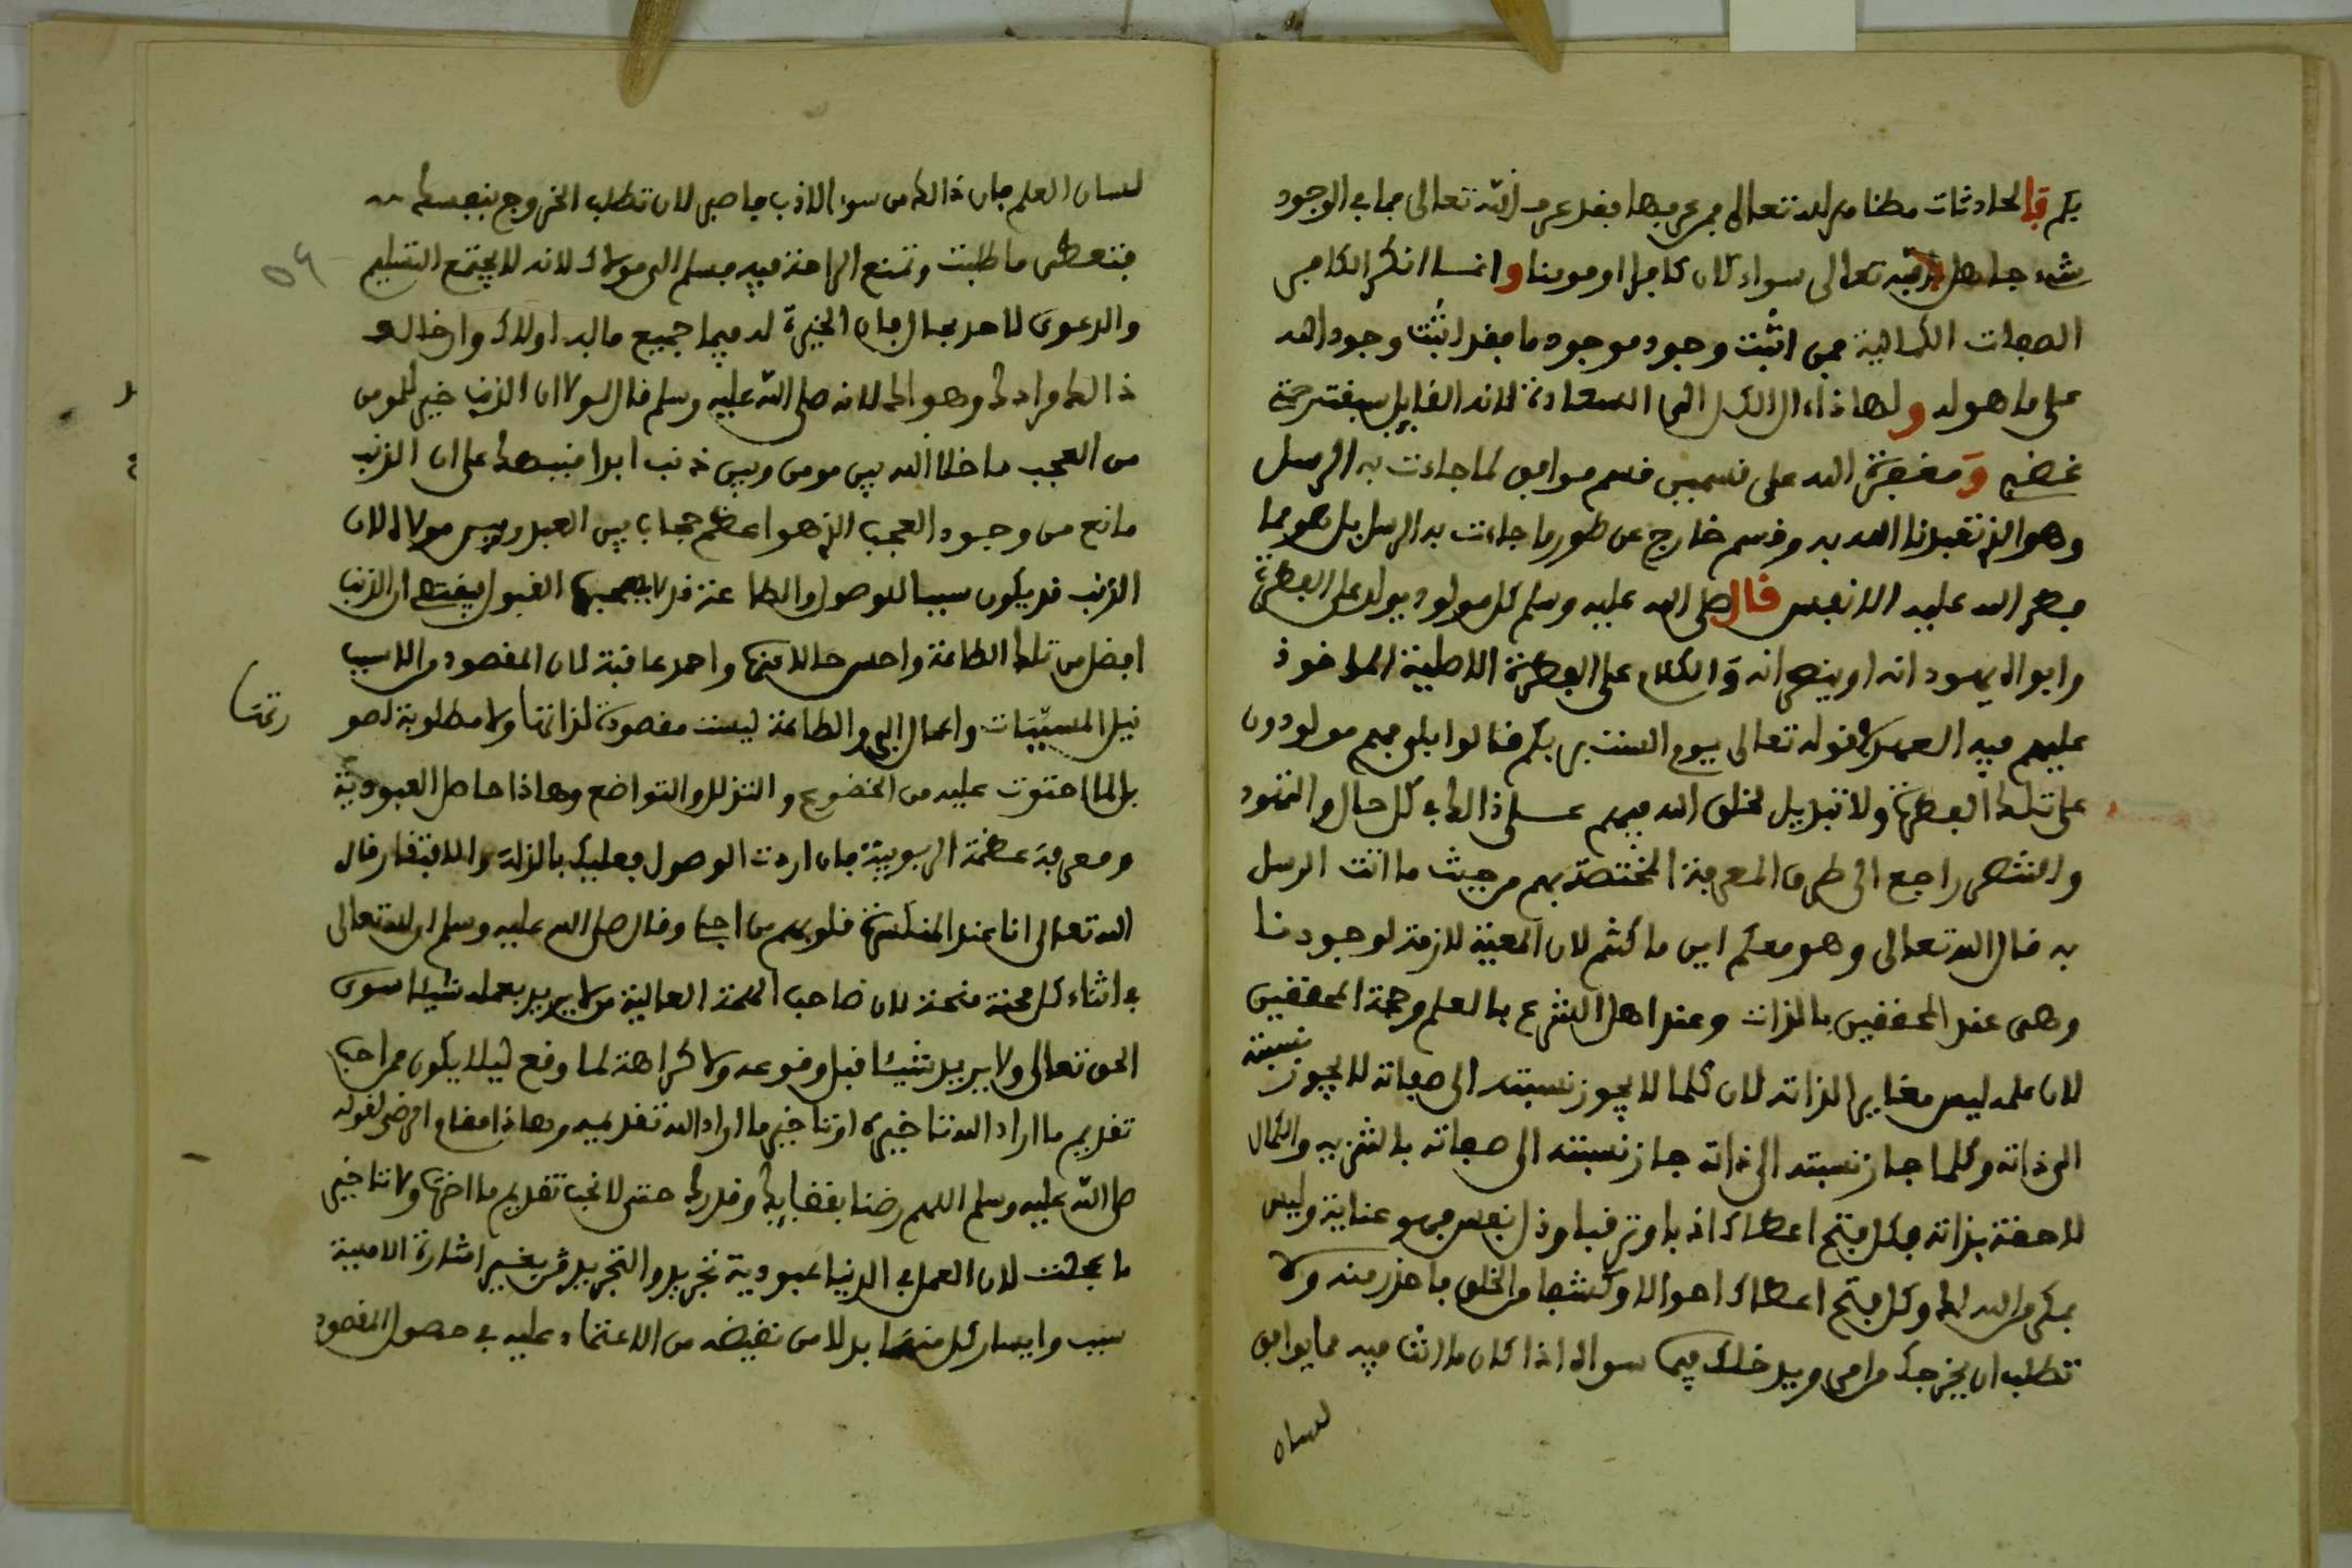 بكم فالحادثات مظاهر لله تعالى فمن عرفها فقد عرف الله تعالى فما في الوجود
شيء جاهل بربه تعالى سواء كان كافرا او مومنا وانما انكر الكافر
الصفات الكمالية فمن اثبت وجود موجود ما فقد اثبت وجود الله
على ما هو له ولهاذا ءال الكل الى السعادة لانه القايل سبقت رحمتي
غضبي ومعرفة الله على قسمين قسم موافق لما جاءت به الرسل
وهو الذي تعبدنا الله به وقسم خارج عن طور ما جاءت به الرسل بل هو مما
فطر الله عليه الانفس قال صلى الله عليه وسلم كل مولود يولد على الفطرة
وابواه يهودانه او ينصرانه والكلام على الفطرة الاصلية الماخوذ
عليهم فيه العهد بقوله تعالى يوم الست بربكم قالوا بلى فهم مولودون
على تلك الفطرة ولا تبديل لخلق الله فهم على ذالك في كل حال والتهود
والتنصر راجع الى طرق المعرفة المختصة بهم من حيث ما اتت الرسل
به قال الله تعالى وهو معكم اين ما كنتم لان المعية لازمة لوجودنا
وهي عند المحققين بالذات وعند اهل الشرع بالعلم وحجة المحققين
لان علمه ليس مغايرا لذاته لان كلما لا يجوز نسبته الى صفاته لا يجوز نسبته
الى ذاته وكلما جاز نسبته الى ذاته جاز نسبته الى صفاته بالتنزيه والكمال
لاحقة بذاته فكل فتح اعطاك ادبا وترقيا وذل نفس فهو عناية وليس
بمكر من الله لك وكل فتح اعطاك احوالا وكشفا من الخلق فاحذر منه ولا
تطلب ان يخرجك من امر ويدخلك فيما سواه اذا كان ما انت فيه مما يوافق
لسان
لسان العلم فان ذالك من سوء الادب فاصبر لان تطلب الخروج بنفسك
فتعطى ما طلبت وتمنع الراحة فيه فسلم الى مولاك لانه لا يجتمع التسليم
٥٩
والدعوى لاحد بحال فان الخيرة له فيما جميع ما به اولاك وادخالك
ذالك مرادك وهو اك لانه صلى الله عليه وسلم قال لولا ان الذنب خير للمومن
من العجب ما خلا الله بين مومن وبين ذنب ابدا فنبهك على ان الذنب
مانع من وجود العجب الذي هو اعظم حجاب بين العبد وبين مولاه لان
الذنب قد يكون سببا للوصول والطاعة قد لا يصحبها القبول فيقتضي ان الذنب
افضل من تلك الطاعة واحسن حالا منها واحمد عاقبة لان المقصود من الاسباب
نيل المسببات واعمال البر والطاعة ليست مقصودة لذاتها ولا مطلوبة لصو
رتها
بل لما احتوت عليه من الخضوع والتذلل والتواضع وهاذا حاصل العبودية
ومعرفة عظمة الربوبية فان اردت الوصول فعليك بالذلة والافتقار قال
الله تعالى انا عند المنكسرة قلوبهم من اجلي وقال صلى الله عليه وسلم ان لله تعالى
في اثناء كل محنة منحة لان صاحب الهمة العالية من لا يريد بعمله شيئا سوى
الحق تعالى ولا يريد شيئا قبل وقوعه ولا كراهة لما وقع ليلا يكون ممن احب
تقديم ما اراد الله تاخيره او تاخير ما اراد الله تقديمه وهاذا مقام الرضى لقوله
صلى الله عليه وسلم اللهم رضنا بقضايك وقدرك حتى لا نحب تقديم ما اخرت ولا تاخير
ما عجلت لان العمل في الدنيا عبودية تجريد والتجريد من غير اشارة الاهية
سبب وايسار كل منهما بدلا من نقيضه من الاعتماد عليه في حصول المقصود